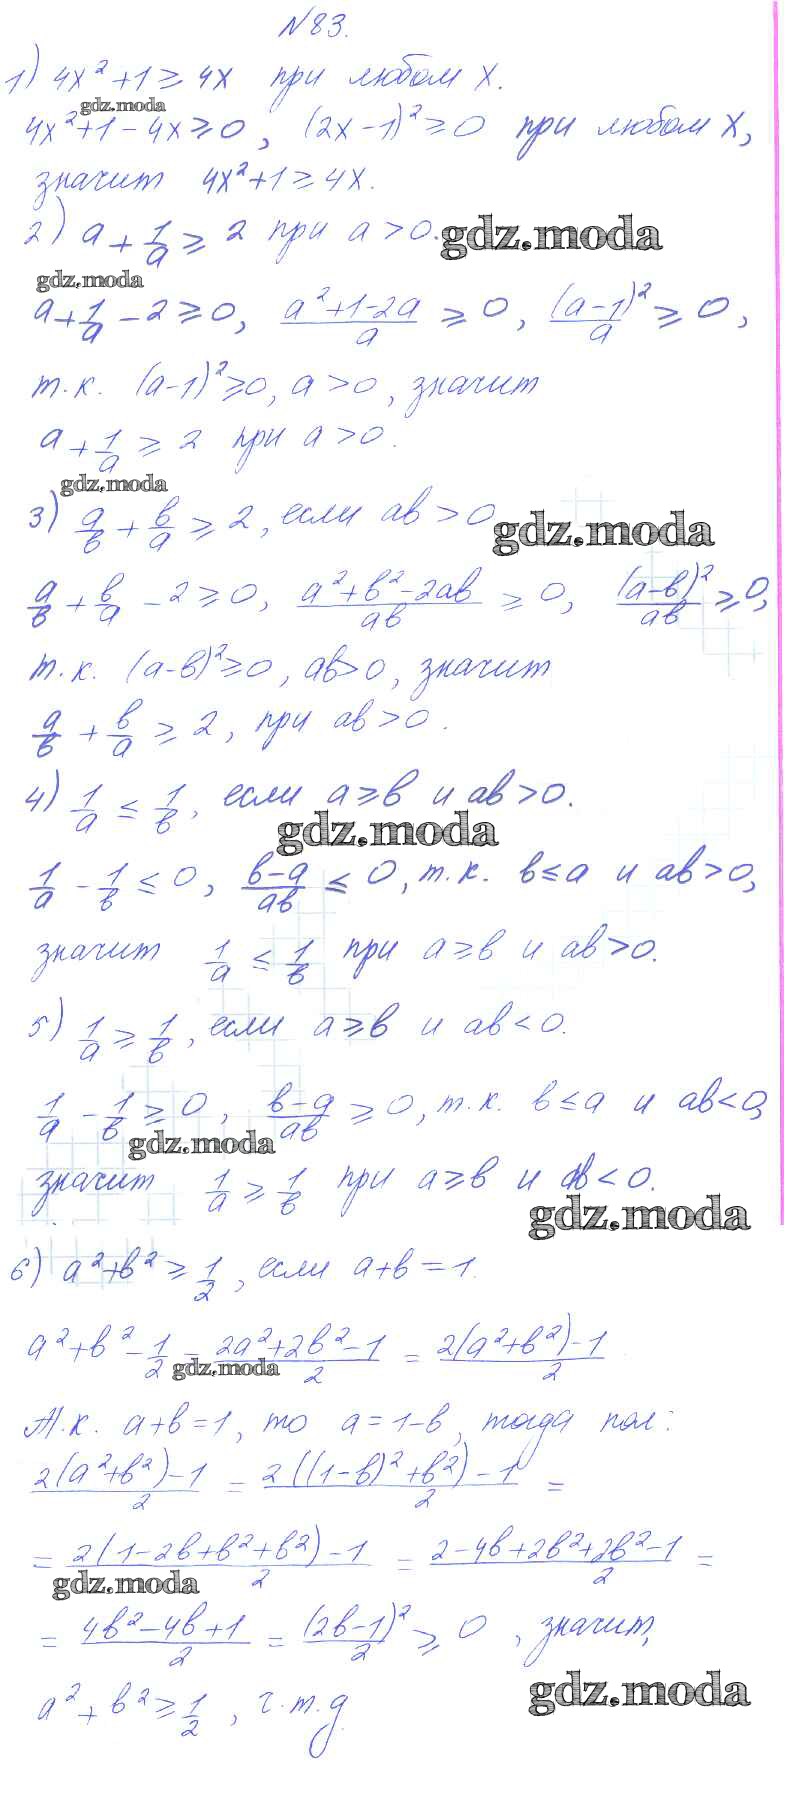 №83.
1) 4x² + 1 ≥ 4x при любом x.
gdz.moda
4x² + 1 - 4x ≥ 0, (2x - 1)² ≥ 0 при любом x,
значит 4x² + 1 ≥ 4x.
2) a + 1/a ≥ 2 при a > 0. gdz.moda
gdz.moda
a + 1/a - 2 ≥ 0, (a² + 1 - 2a)/a ≥ 0, (a - 1)²/a ≥ 0,
т.к. (a - 1)² ≥ 0, a > 0, значит
a + 1/a ≥ 2 при a > 0.
gdz.moda
3) a/в + в/a ≥ 2, если aв > 0 gdz.moda
a/в + в/a - 2 ≥ 0, (a² + в² - 2aв)/aв ≥ 0, (a - в)²/aв ≥ 0,
т.к. (a - в)² ≥ 0, aв > 0, значит
a/в + в/a ≥ 2, при aв > 0.
4) 1/a ≤ 1/в, если a ≥ в и aв > 0.
gdz.moda
1/a - 1/в ≤ 0, (в - a)/aв ≤ 0, т.к. в ≤ a и aв > 0,
значит 1/a ≤ 1/в при a ≥ в и aв > 0.
5) 1/a ≥ 1/в, если a ≥ в и aв < 0.
1/a - 1/в ≥ 0, (в - a)/aв ≥ 0, т.к. в ≤ a и aв < 0,
gdz.moda
значит 1/a ≥ 1/в при a ≥ в и aв < 0.
gdz.moda
6) a² + в² ≥ 1/2, если a + в = 1.
a² + в² - 1/2 = (2a² + 2в² - 1)/2 = (2(a² + в²) - 1)/2
gdz.moda
Т.к. a + в = 1, то a = 1 - в, тогда пол:
(2(a² + в²) - 1)/2 = (2((1 - в)² + в²) - 1)/2 =
= (2(1 - 2в + в² + в²) - 1)/2 = (2 - 4в + 2в² + 2в² - 1)/2 =
gdz.moda
= (4в² - 4в + 1)/2 = (2в - 1)²/2 ≥ 0, значит,
a² + в² ≥ 1/2, ч.т.д. gdz.moda